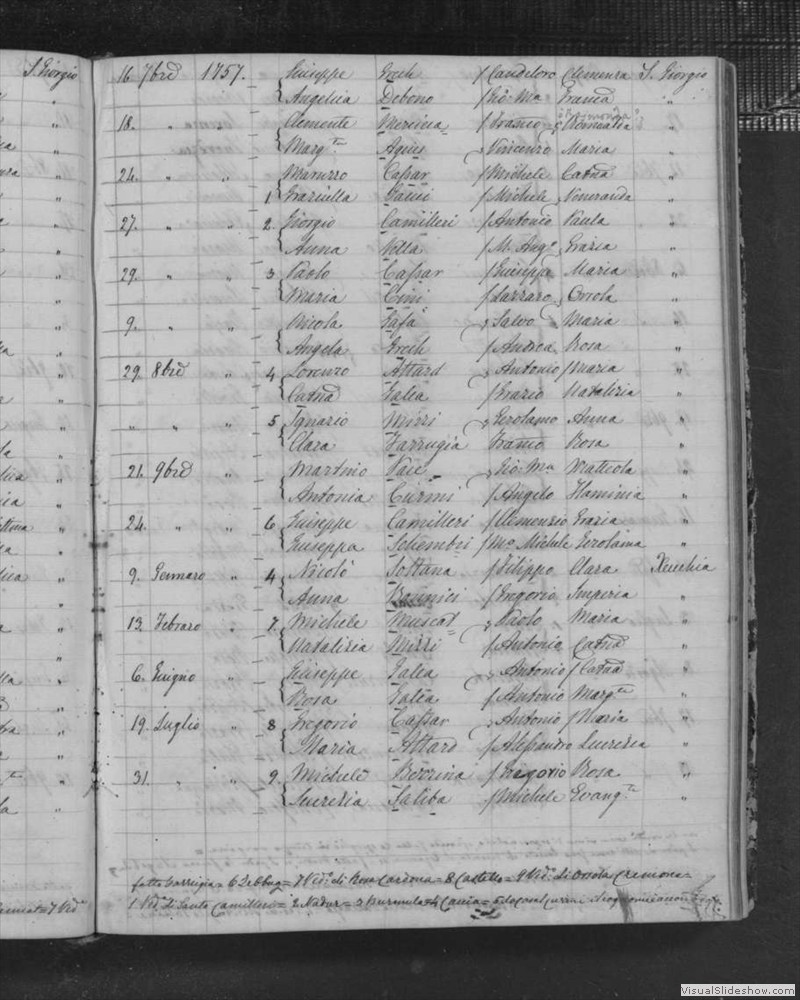 S. Giorgio
16. 7brē 1757. Giuseppe Grech f Candeloro Clemenza S. Giorgio
Angelica Debono f Gio: Ma Franca "
18. " " Clemente Mercieca f Franco "
Margta Agius Vincenzo Maria "
24. " " Maruzzo Cassar f Michele Catnā "
1 Graziulla Gauci f Michele Veneranda "
27. " " 2. Giorgio Camilleri f Antonio Paula "
Anna Vella f M. Ango Grazia "
29. " " 3 Paolo Cassar f Giuseppe Maria "
Maria Cini f Lazzaro Orsola "
9. " " Nicola Safā Salvo Maria "
Angela Grech f Andrea Rosa "
29. 8brē " 4 Lorenzo Attard Antonio f Maria "
Catnā Galea f Grazio Natalizia "
" " " 5 Ignazio Mizzi Gerolamo Anna "
Clara Farrugia Franco Rosa "
21. 9brē " Martino Pace Gio: Ma Matteola "
Antonia Curmi f Angelo Flaminia "
24. " " 6 Giuseppe Camilleri f Clemenzio Grazia "
Giuseppa Schembri f Mo Michele Gerolama "
9. Gennaro " 4 Nicolò Soltana f Filippo Clara Xeuchia
Anna f Gregorio Imperia "
13. Febraro " 7. Michele Muscat Paolo Maria "
Natalizia Mizzi f Antonio Catnā "
6. Giugno " Giuseppe Galea Antonio f Catnā "
Rosa Galea f Antonio Margta "
19. Luglio " 8 Gregorio Cassar Antonio f Maria "
Maria Attard f Alessandro Lucrezia "
31. " " 9. Michele Bezzina f Gregorio Rosa "
Lucrezia Saliba f Michele Evangta "
fatto Farrugia = 6 Zebbug = 7 Vedª di Rosa Cardona = 8 Castello = 9 Vedª di Orsola Cremona =
1 Vedª di Santa Camilleri = 2 Nadur = 3 = 4 Cania =
VisualSlideshow.com